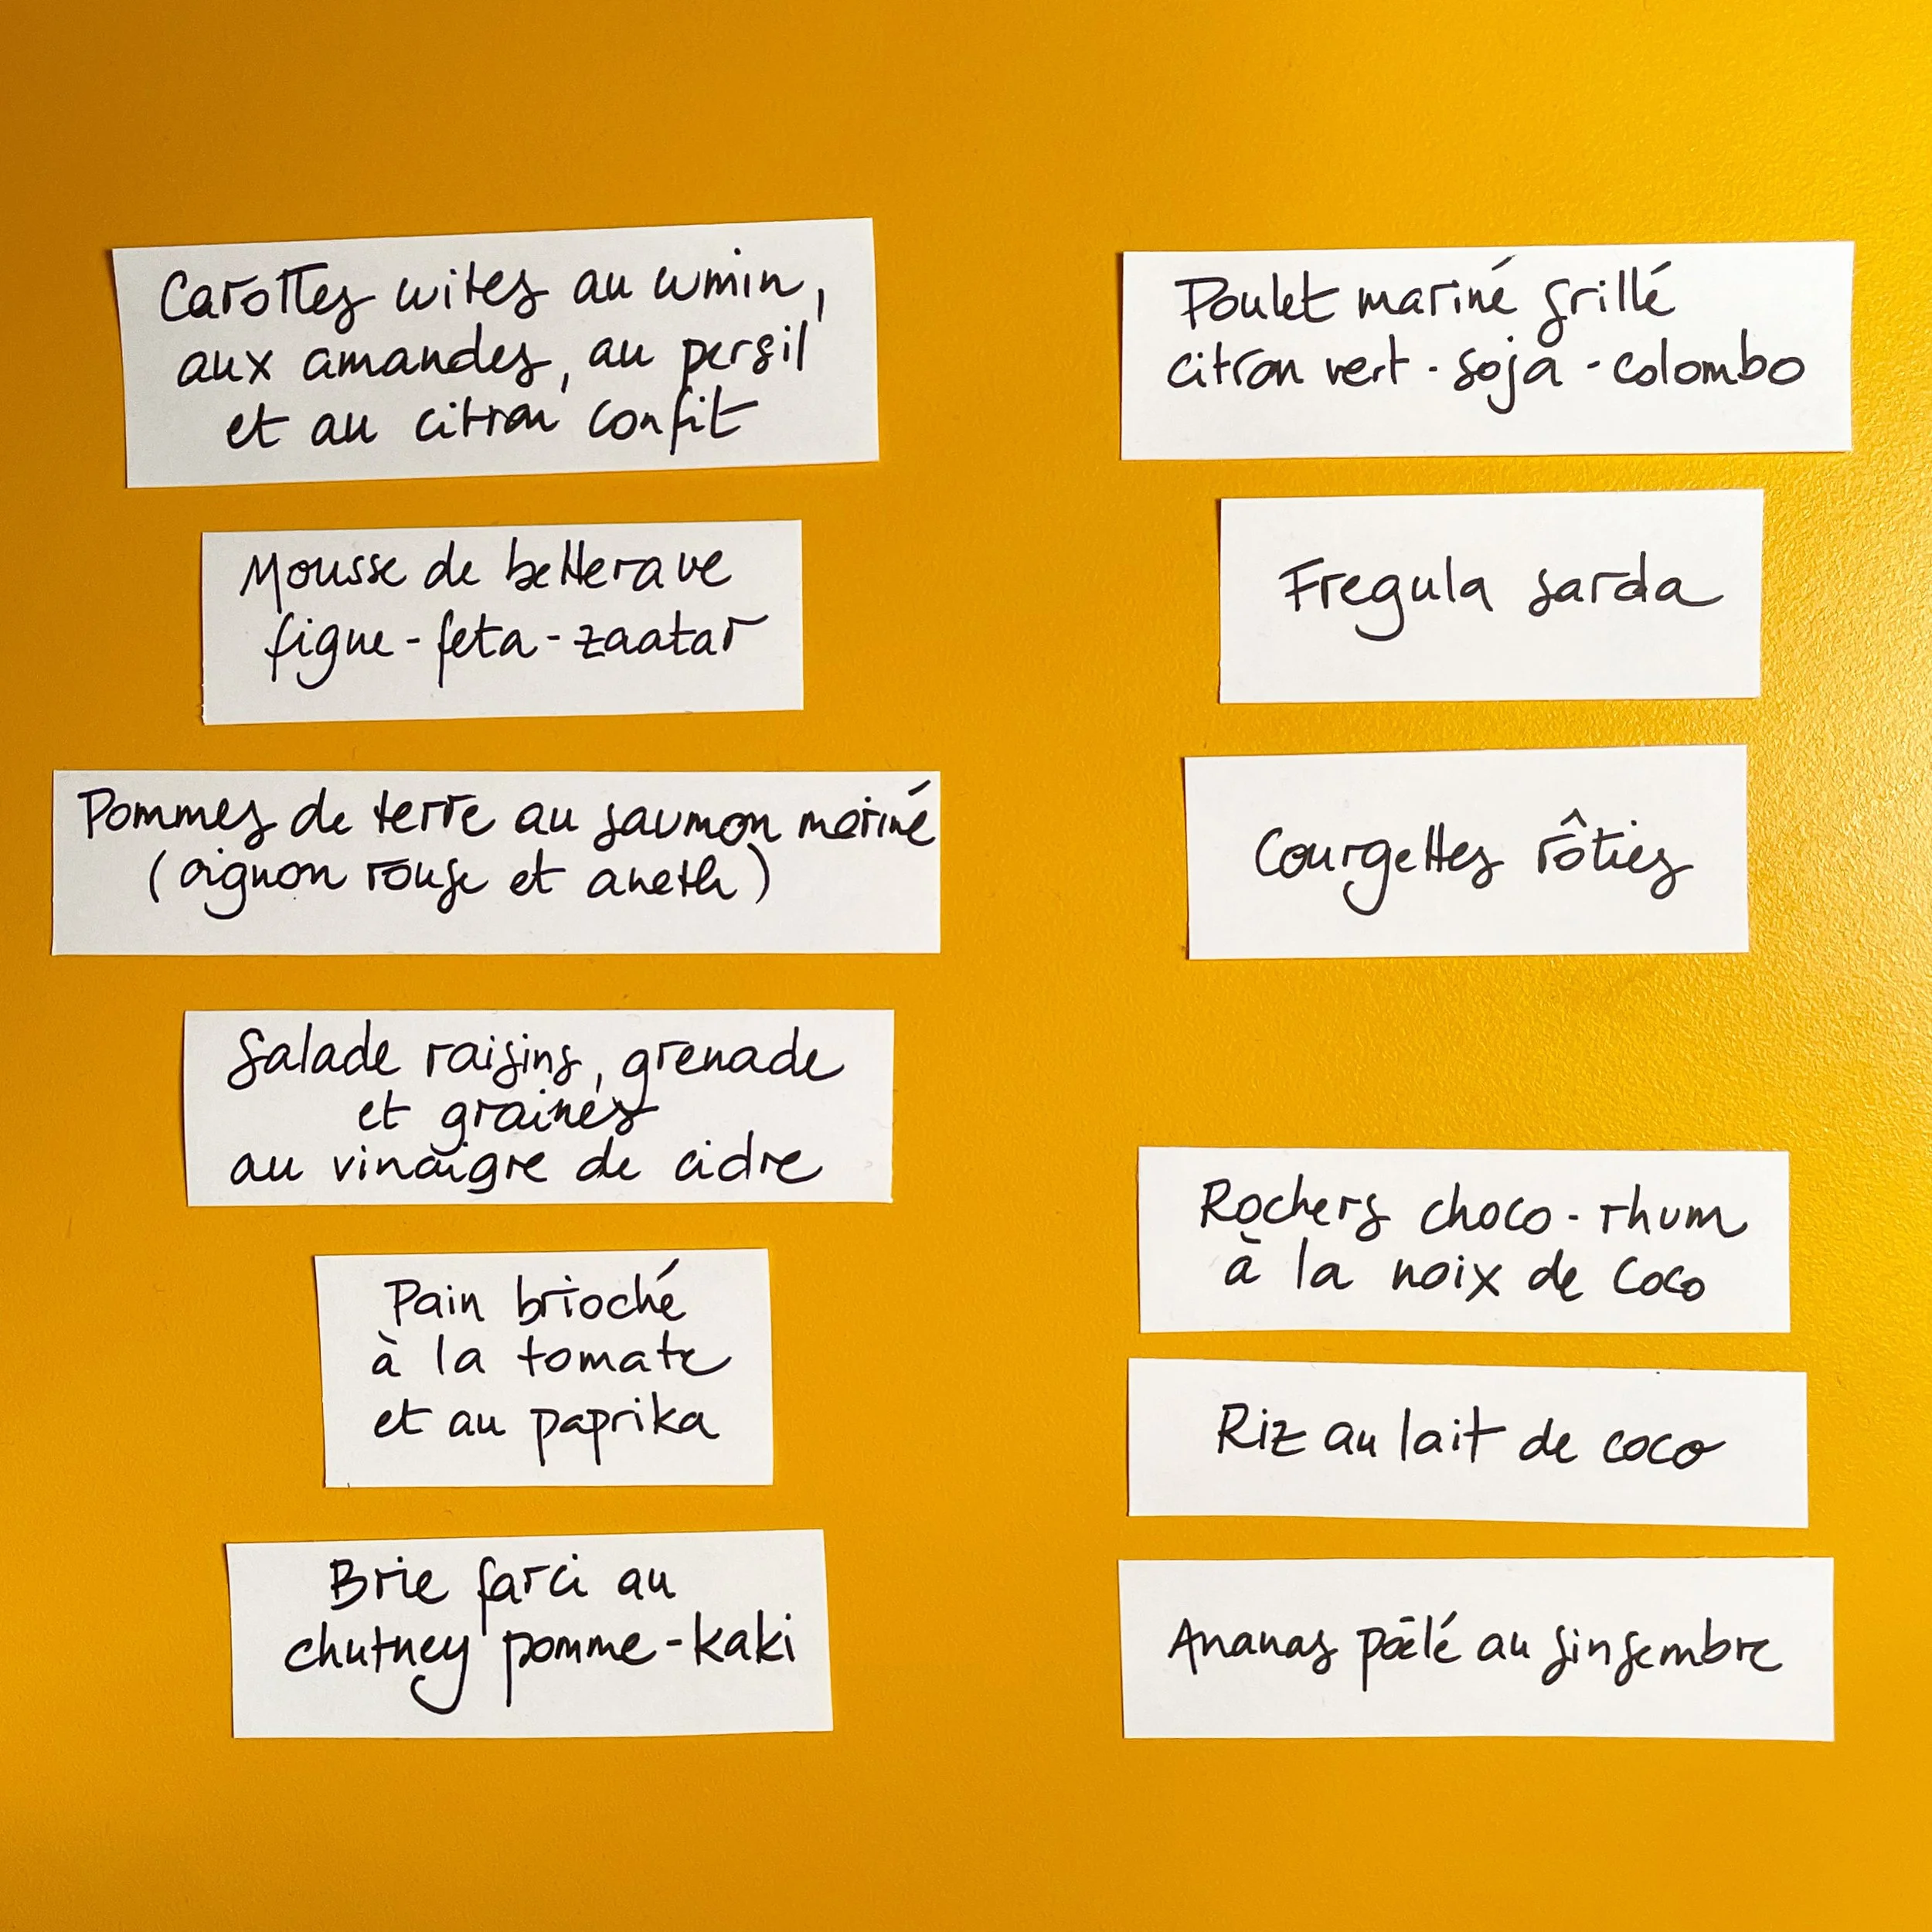 Carottes cuites au cumin,
aux amandes, au persil
et au citron confit
Mousse de betterave
figue - feta - zaatar
Pommes de terre au saumon mariné
(oignon rouge et aneth)
Salade raisins, grenade
et graines
au vinaigre de cidre
Pain brioché
à la tomate
et au paprika
Brie farci au
chutney pomme - kaki
Poulet mariné grillé
citron vert - soja - colombo
Fregula sarda
Courgettes rôties
Rochers choco - rhum
à la noix de coco
Riz au lait de coco
Ananas poêlé au gingembre